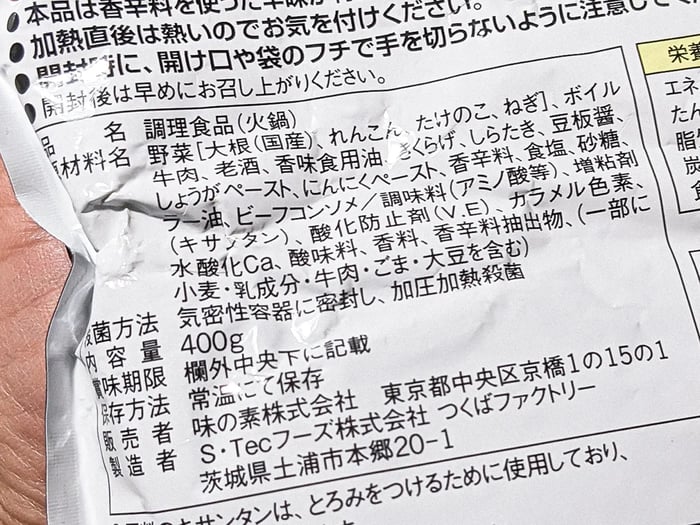 本品は香辛料を使った辛味が
加熱直後は熱いのでお気を付けください。
開封時に、開け口や袋のフチで手を切らないように注意して
開封後は早めにお召し上がりください。
品 名 調理食品(火鍋)
原材料名 野菜[大根(国産)、れんこん、たけのこ、ねぎ]、ボイル
牛肉、老酒、香味食用油、きくらげ、しらたき、豆板醤、
しょうがペースト、にんにくペースト、香辛料、食塩、砂糖、
ラー油、ビーフコンソメ/調味料(アミノ酸等)、増粘剤
(キサンタン)、酸化防止剤(V.E)、カラメル色素、
水酸化Ca、酸味料、香料、香辛料抽出物、(一部に
小麦・乳成分・牛肉・ごま・大豆を含む)
殺菌方法 気密性容器に密封し、加圧加熱殺菌
内容量 400g
賞味期限 欄外中央下に記載
保存方法 常温にて保存
販売者 味の素株式会社 東京都中央区京橋1の15の1
製造者 S・Tecフーズ株式会社 つくばファクトリー
茨城県土浦市本郷20-1
キサンタンは、とろみをつけるために使用しており、
栄養
エネ
たん
脂
炭